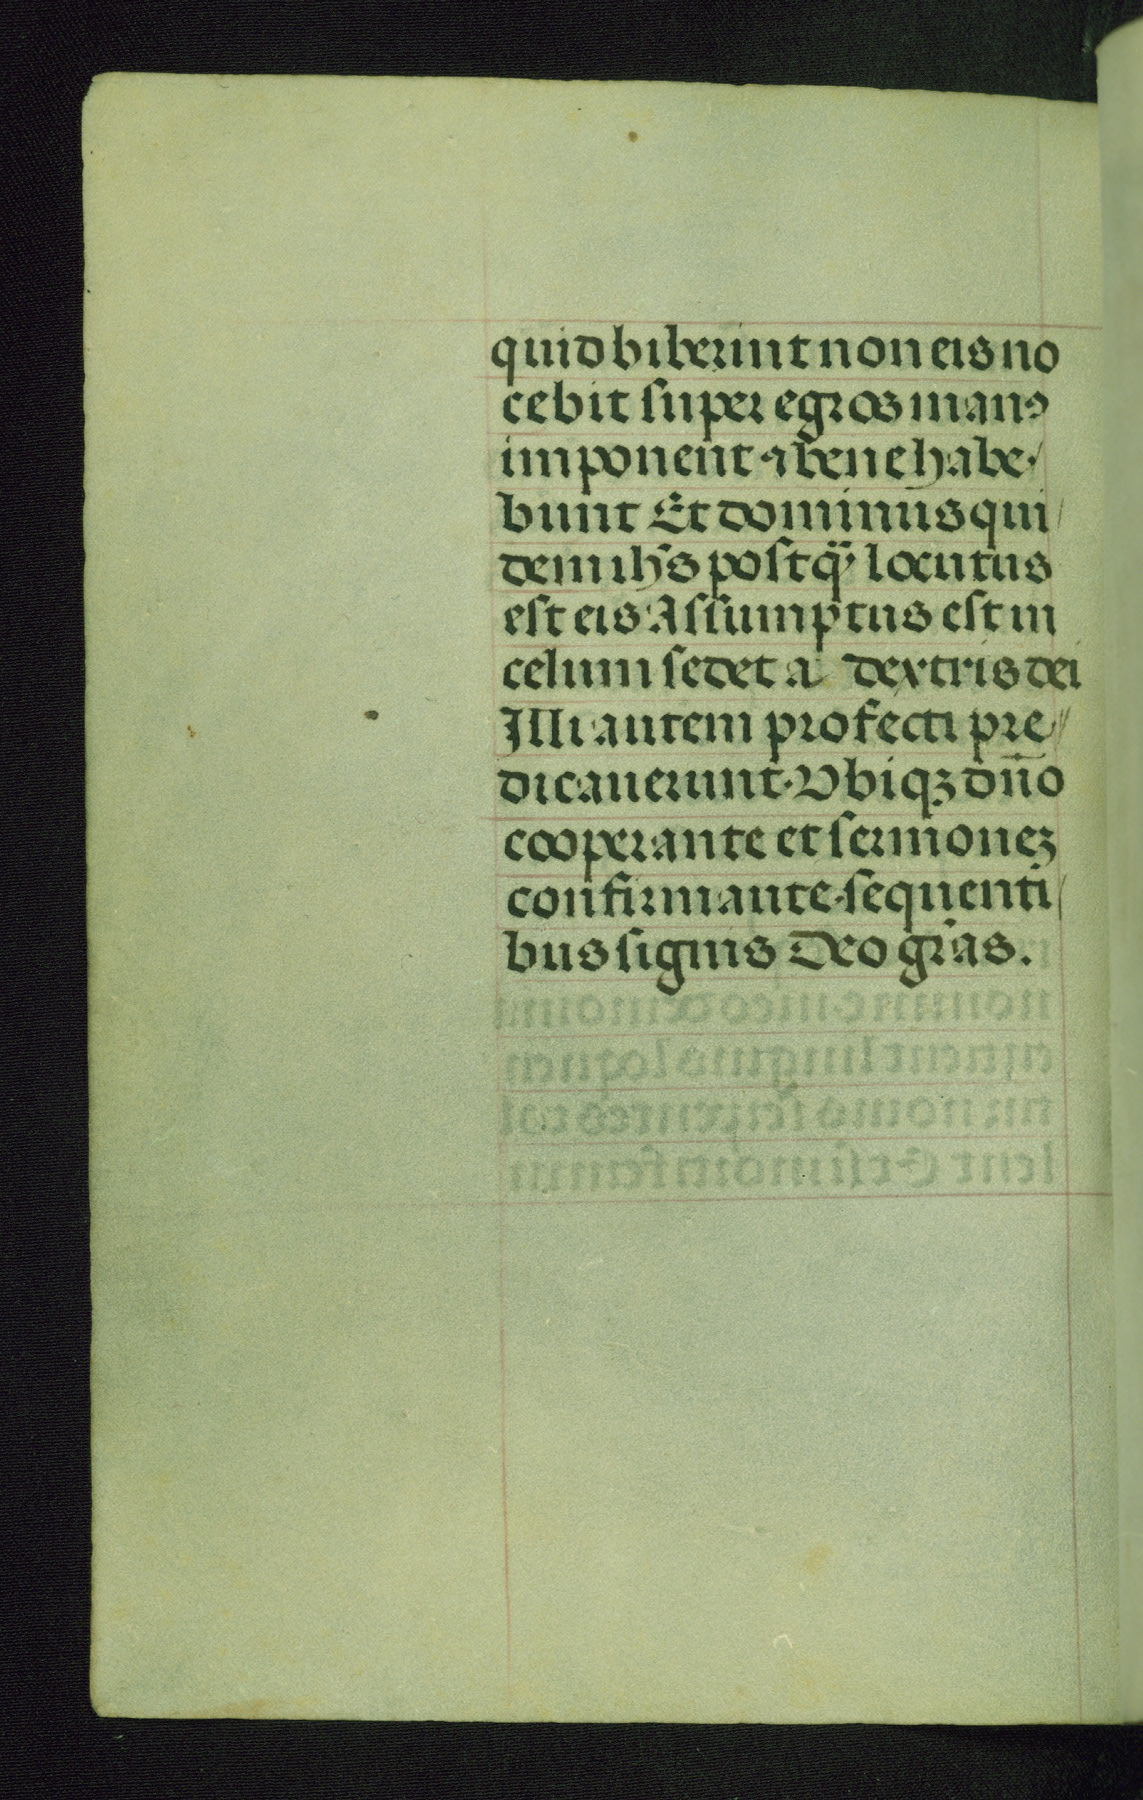 quid biberint non eis no
cebit super egros manꝰ
imponent ⁊ bene habe
bunt Et dominus qui
dem ihs postq̃ locutus
est eis Assumptus est in
celum sedet a dextris dei
Illi autem profecti pre
dicauerunt. Vbiqꝫ dño
cooperante et sermoneꝫ
confirmante sequenti
bus signis Deo gr̃as.